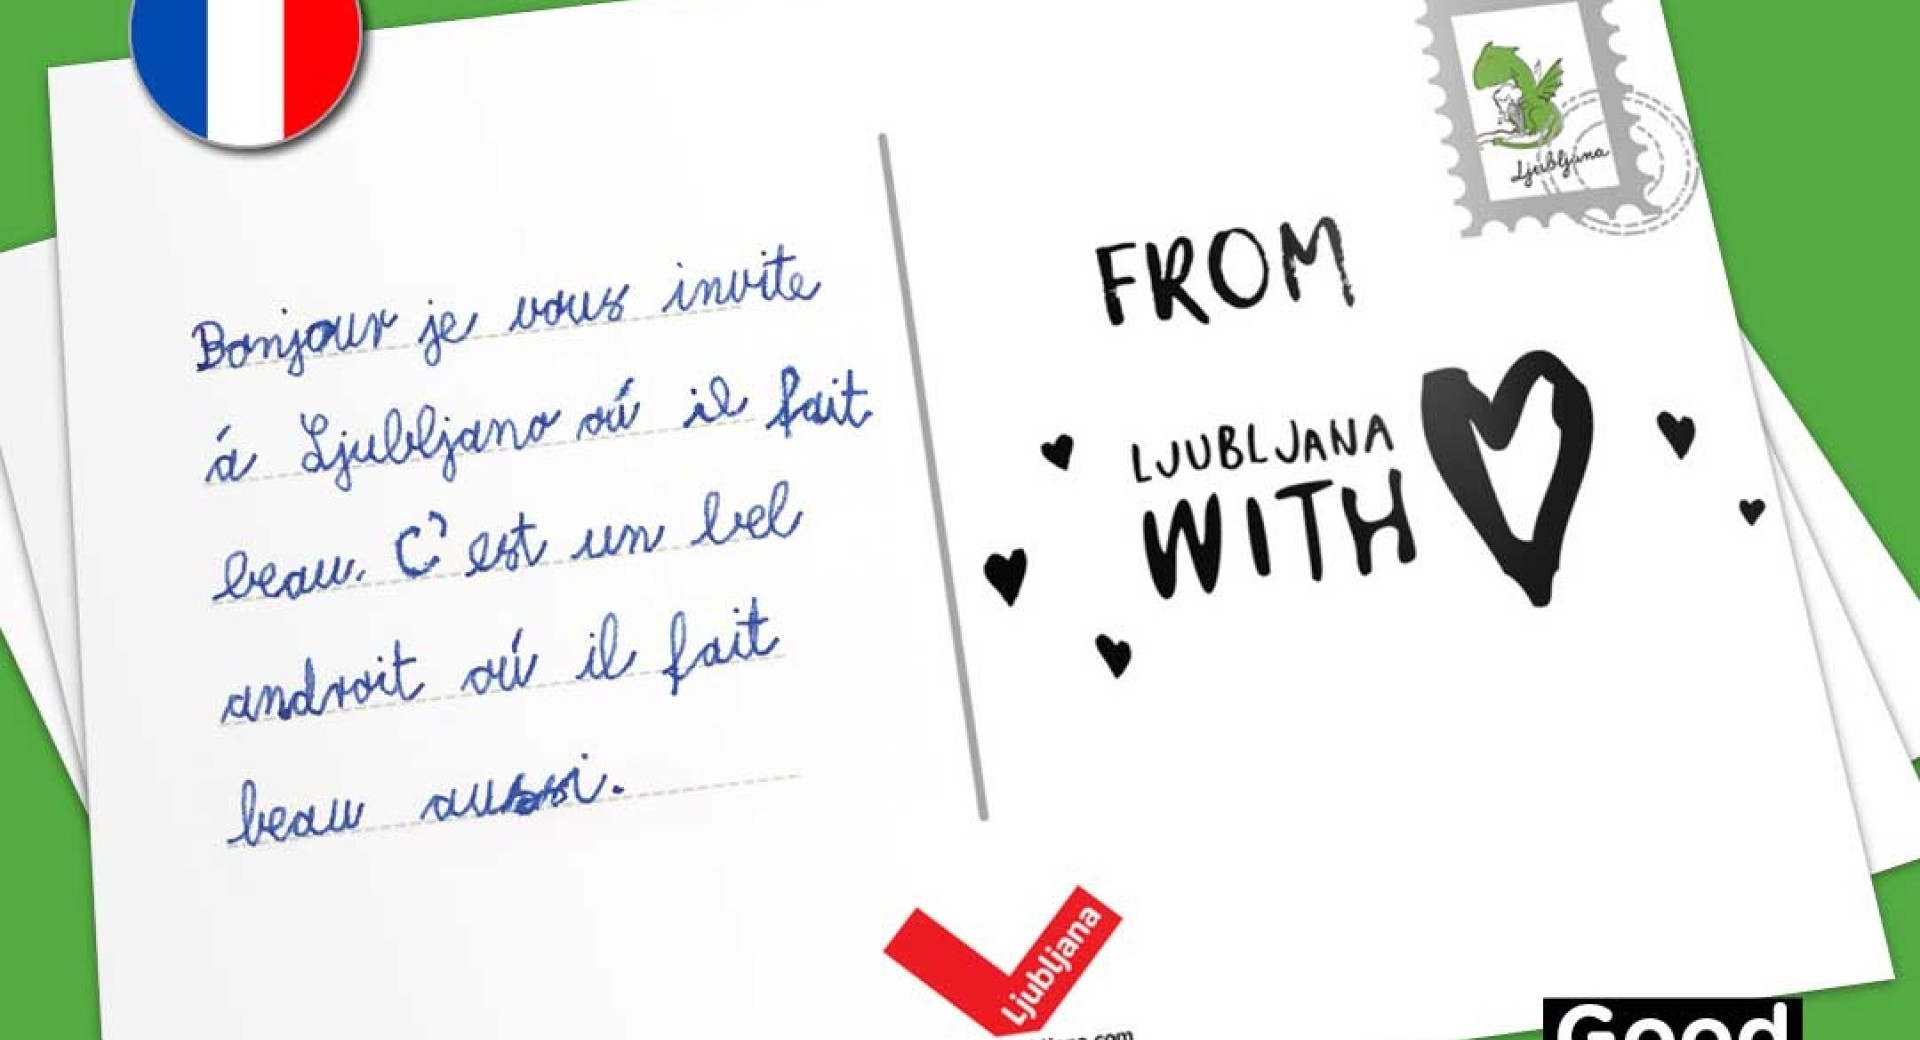 Bonjour je vous invite
á Ljubljano oú il fait
beau. C'est un bel
androit oú il fait
beau aussi.
Ljubljana
FROM
LJUBLJANA
WITH
Ljubljana
Good